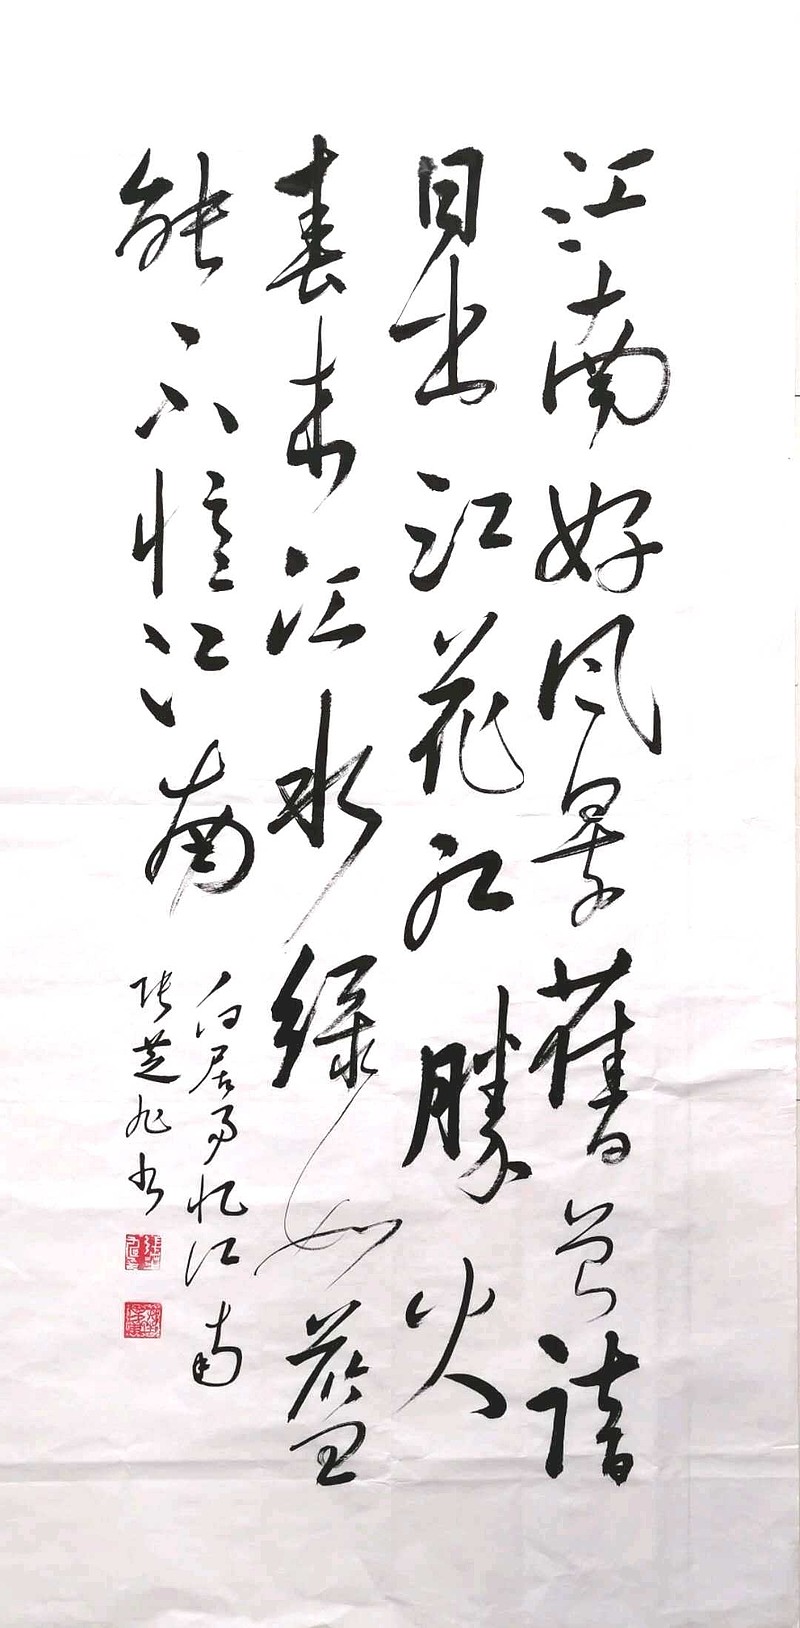 江南好风景舊曾諳
日出江花红勝火
春来江水绿如蓝
能不憶江南
白居易忆江南
张芝旭书